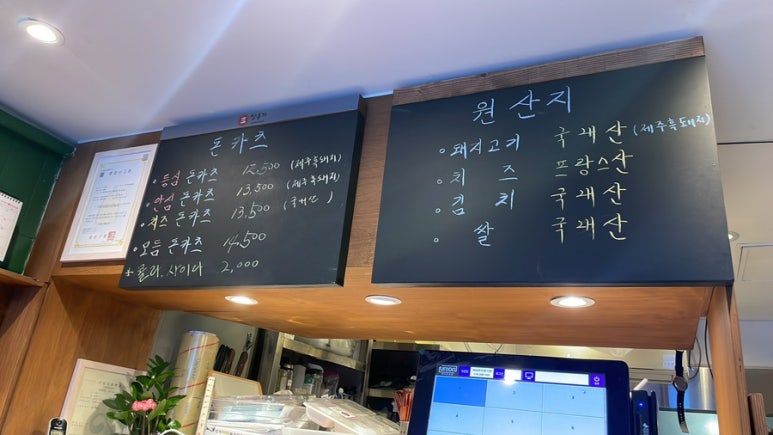 돈카츠
• 등심 돈카츠 12,500 (제주흑돼지)
• 안심 돈카츠 13,500 (제주흑돼지)
• 치즈 돈카츠 13,500
• 모듬 돈카츠 14,500
* 콜라, 사이다 2,000
원산지
• 돼지고기 국내산 (제주흑돼지)
• 치즈 프랑스산
• 김치 국내산
• 쌀 국내산